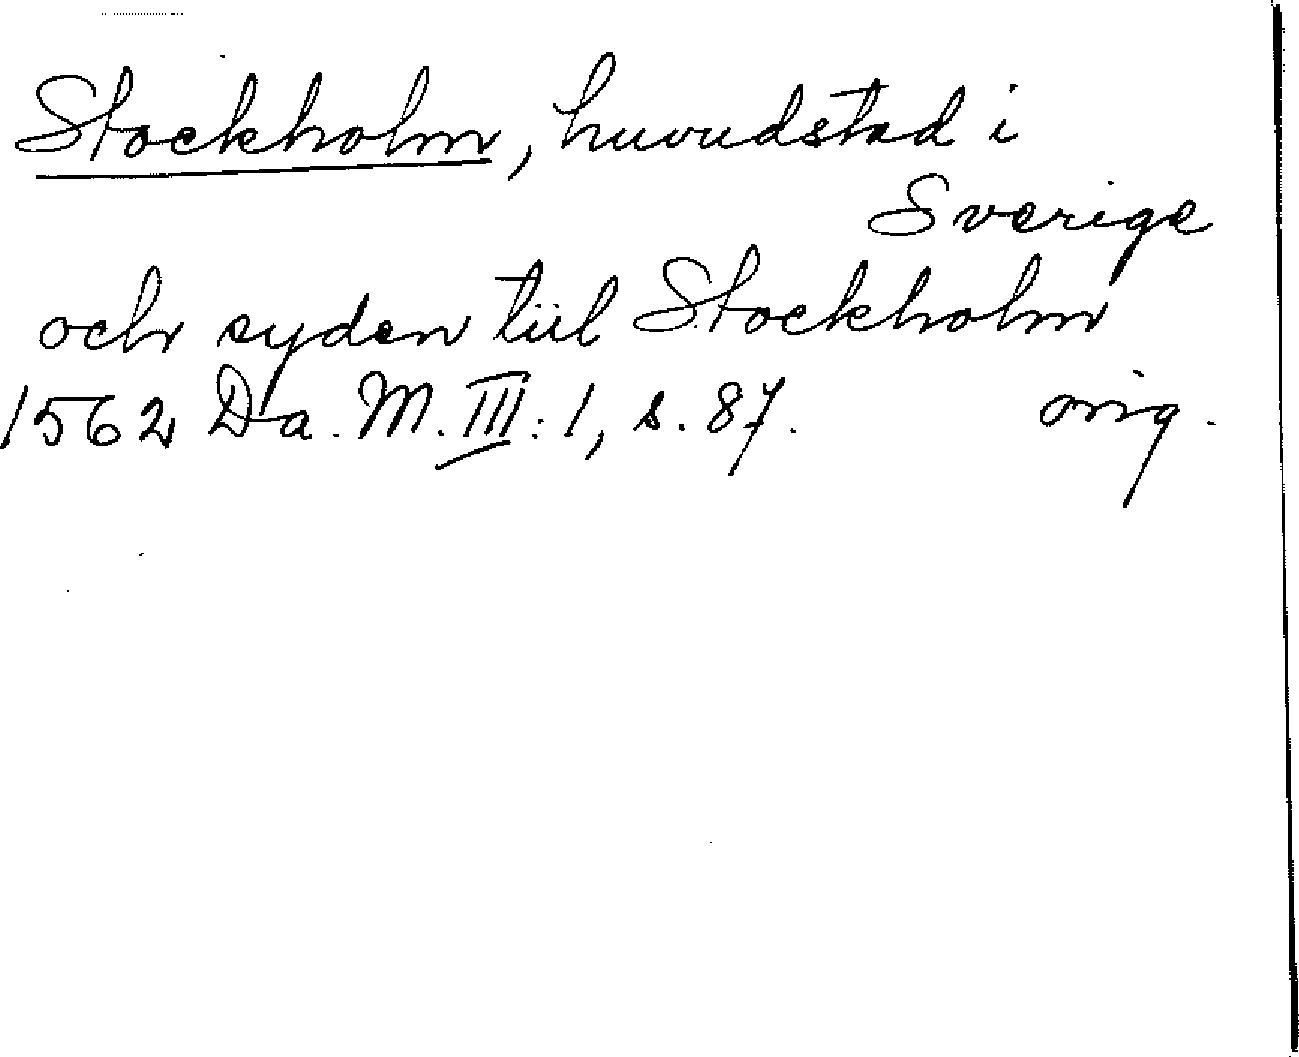 Stockholm, huvudstad i
Sverige
och syden tiil Stockholm
1562 Da. M. III: 1, s. 87. orig.